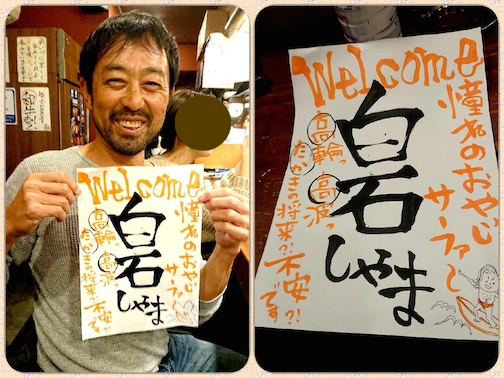 Welcome
憧れのおやじ
サーファ〜
白石しゃま
高輪っ 高波っ
たかきの将来?! 不安?!
です
Welcome
憧れのおやじ
サーファ〜
白石しゃま
高輪っ 高波っ
たかきの将来?! 不安?!
です